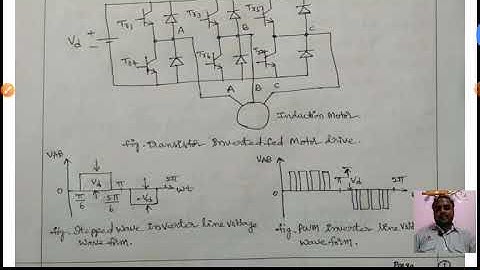 Tr1 Tr3 Tr5
Vd + A B C
Tr4 Tr6 Tr2
A B C
Induction Motor
fig. Transistor Inverter fed Motor drive.
VAB VAB
Vd π 2π π Vd 2π
0 π/6 5π/6 -Vd wt 0
fig. Stepped wave inverter line voltage
wave form.
fig. PWM inverter line
wave form.